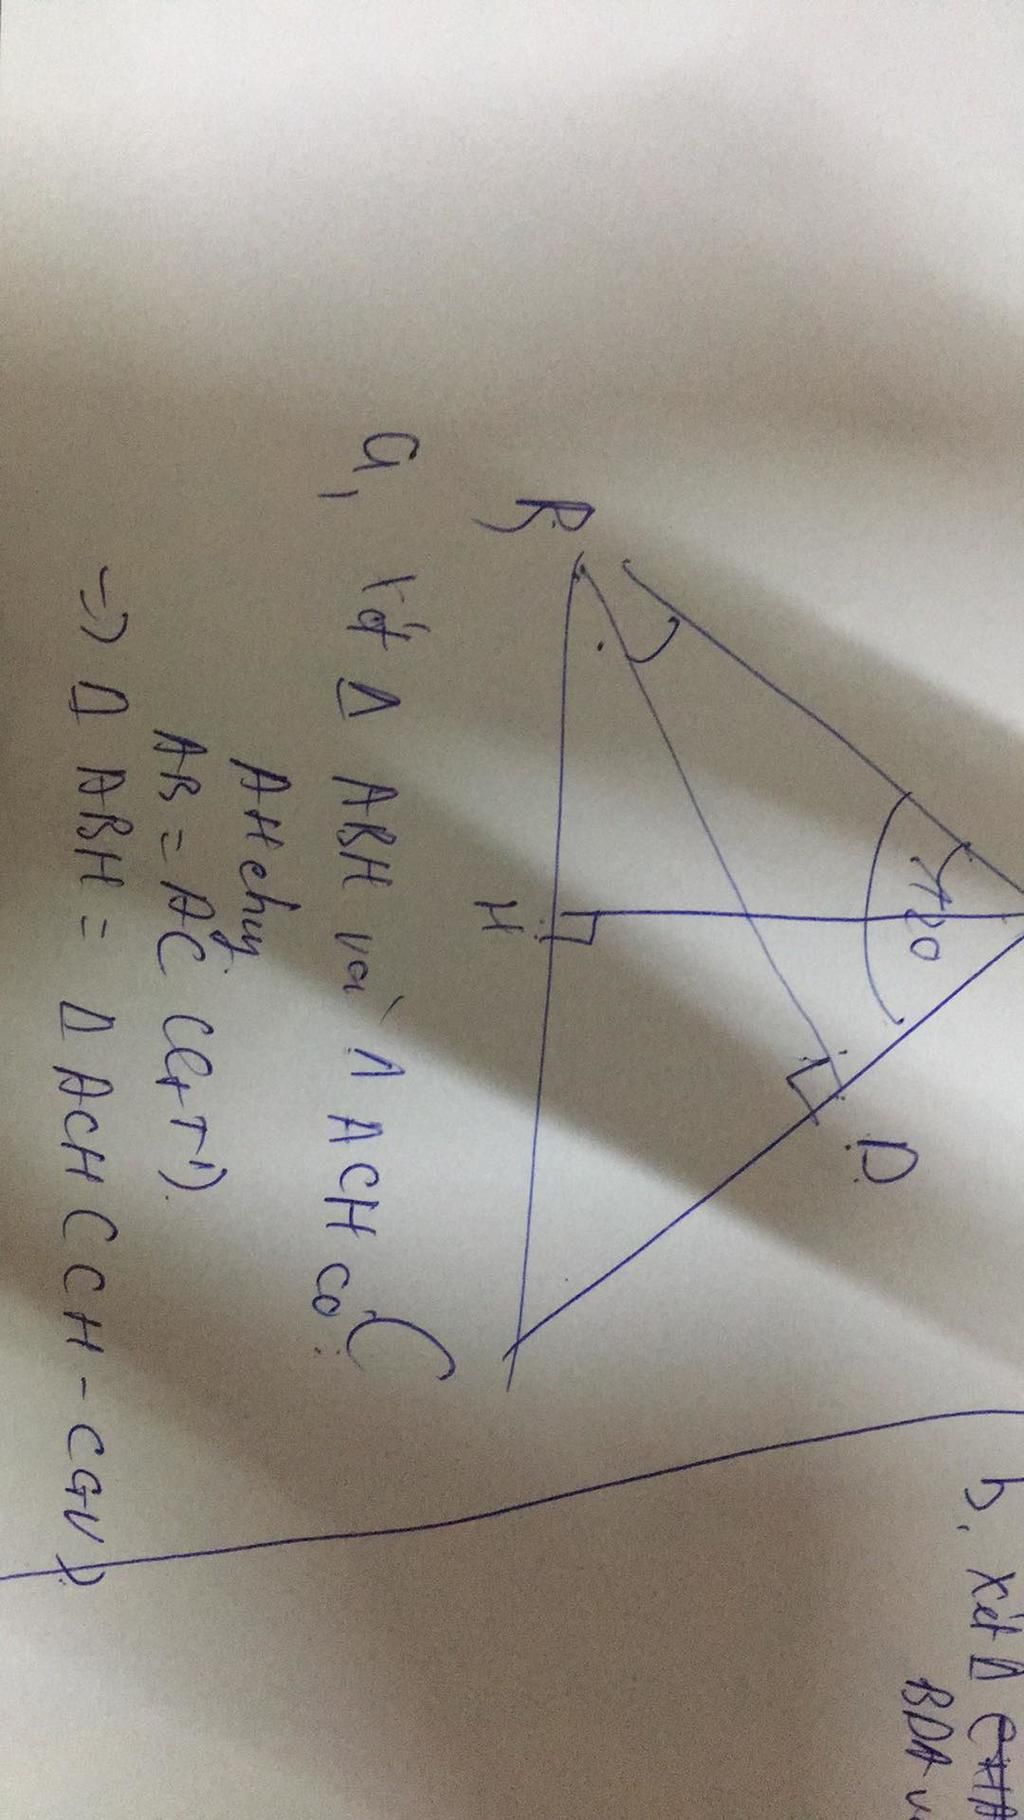 120
B
H
D
C
a, Xét Δ ABH và Δ ACH có:
AH chg
AB = AC (GT).
=> Δ ABH = Δ ACH (CH-CGV)
b, xét Δ
BDA